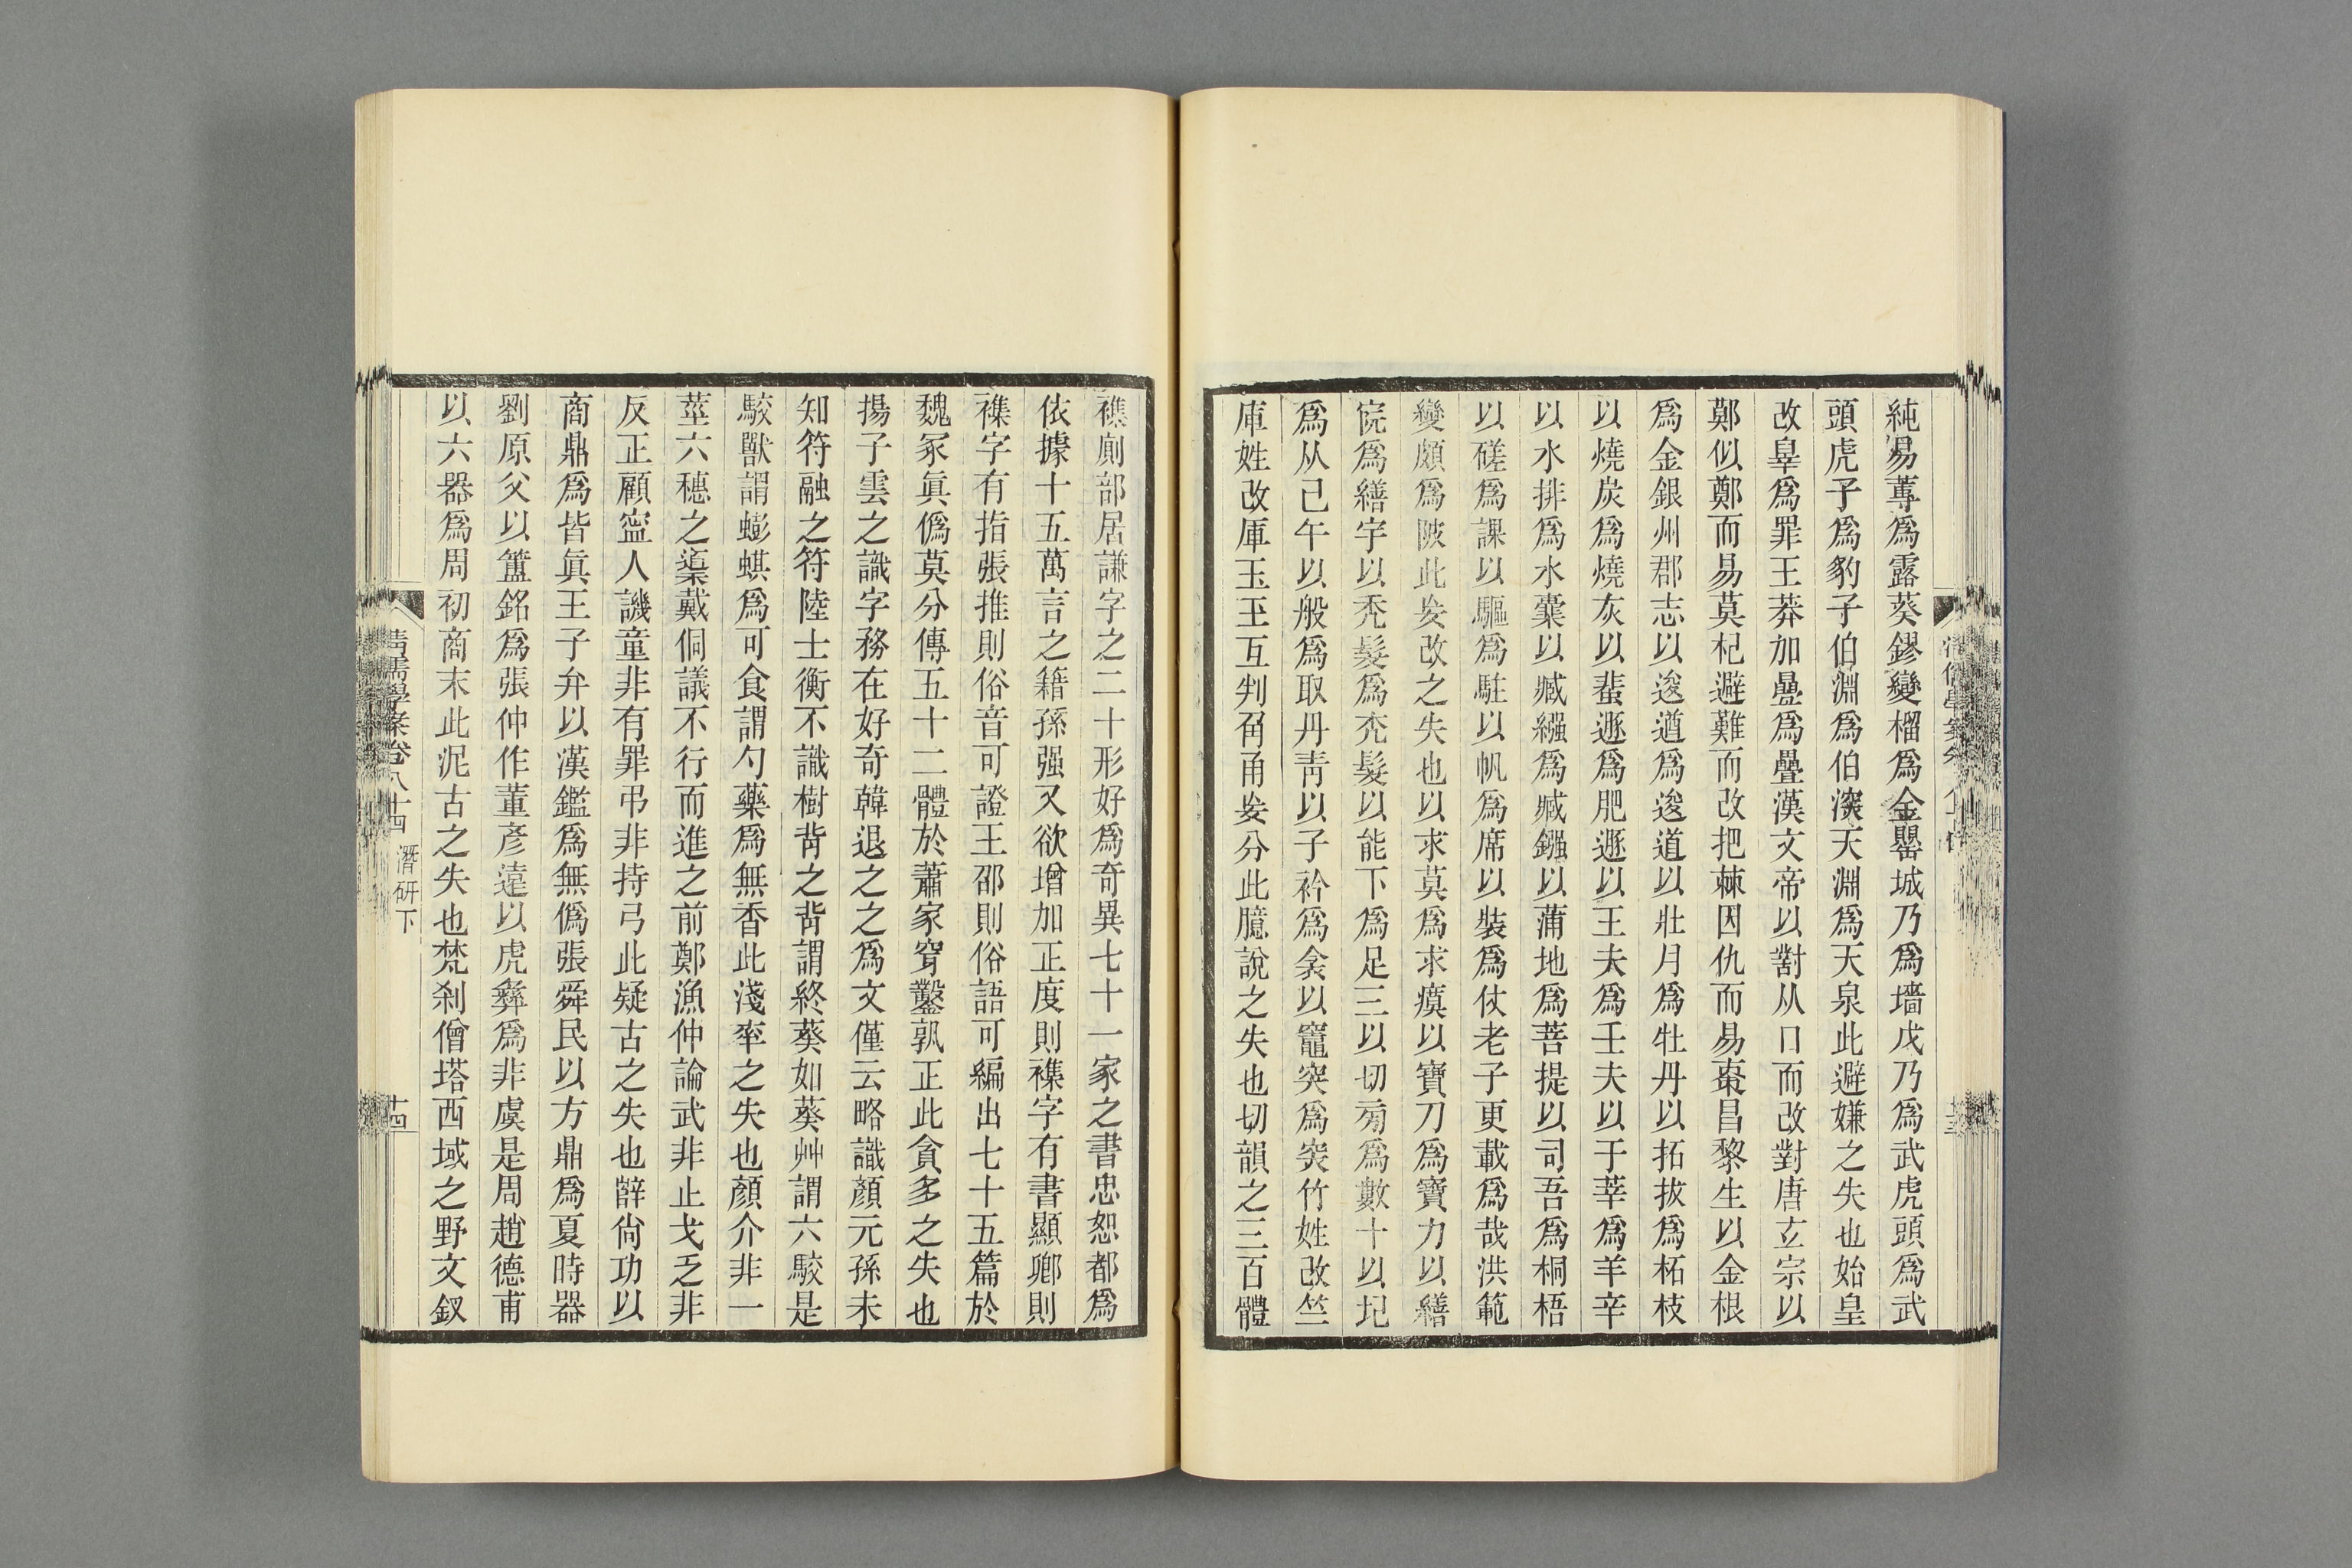 純易蓴爲露葵鏐變榴爲金罌城乃爲墻戊乃爲武虎頭爲武
頭虎子爲豹子伯淵爲伯深天淵爲天泉此避嫌之失也始皇
改辠爲罪王莽加疊爲疊漢文帝以對从口而改對唐玄宗以
鄭似鄭而易莫杞避難而改把棘因仇而易棗昌黎生以金根
爲金銀州郡志以逡遒爲逡道以壯月爲牡丹以拓拔爲柘枝
以燒炭爲燒灰以蜚遯爲肥遯以王夫爲壬夫以于莘爲羊辛
以水排爲水橐以臧繦爲臧鏹以蒲地爲菩提以司吾爲桐梧
以磋爲課以驅爲駐以帆爲席以裝爲仗老子更載爲哉洪範
變頗爲陂此妄改之失也以求莫爲求瘼以寶刀爲寶力以繕
院爲繕宇以禿髮爲禿髮以能下爲足三以切㓯爲數十以圮
爲从己午以般爲取丹靑以子衿爲衾以竈突爲突竹姓改竺
庫姓改厙玉王互判角甪妄分此臆說之失也切韻之三百體
襍廁部居謙字之二十形好爲奇異七十一家之書忠恕都爲
依據十五萬言之籍孫强又欲增加正度則襍字有書顯卿則
襍字有指張推則俗音可證王邵則俗語可編出七十五篇於
魏冢眞僞莫分傳五十二體於蕭家穿鑿孰正此貪多之失也
揚子雲之識字務在好奇韓退之之爲文僅云略識顏元孫未
知符融之符陸士衡不識樹背之背謂終葵如葵艸謂六駮是
駮獸謂蟛蜞爲可食謂勺藥爲無香此淺率之失也顏介非一
莖六穗之䆃戴侗議不行而進之前鄭漁仲論武非止戈乏非
反正顧寍人譏童非有罪弔非持弓此疑古之失也辥尙功以
商鼎爲皆眞王子弁以漢鑑爲無僞張舜民以方鼎爲夏時器
劉原父以簠銘爲張仲作董彥遠以虎彝爲非虞是周趙德甫
以六器爲周初商末此泥古之失也梵刹僧塔西域之野文釵
清儒學案卷八十四 潛研下
十四